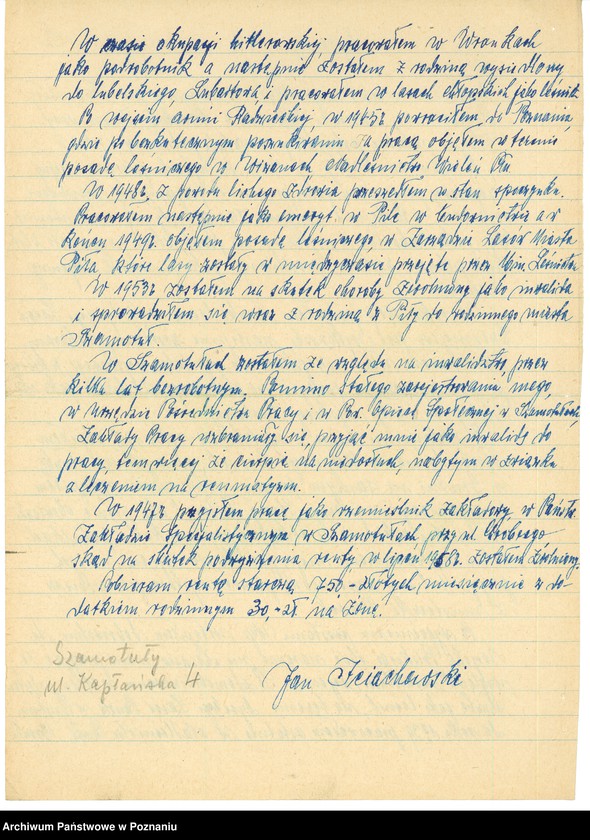 W czasie okupacji hitlerowskiej, pracowałem w Wronkach
jako podrobotnik a następnie zostałem z rodziną wysiedlony
do lubelskiego, Lubartowa i pracowałem w lasach chłopskich jako leśnik.
Po wejściu armii Radzieckiej, w 1945r powróciłem do Poznania,
gdzie po bezskutecznym poszukiwaniu za pracą objąłem w terenie
posadę leśniczego w Nadleśnictwo Wieleń
W 1948r, z powodu lichego zdrowia przeszedłem w stan spoczynku.
Pracowałem następnie jako emeryt w Pile w a w
końcu 1949r. objąłem posadę leśniczego, w Zarządzie Lasów Miasta
Piła, które lasy zostały w międzyczasie przejęte przez Min. Leśnictwa
W 1953r zostałem na skutek choroby zwolniony jako inwalida
i sprowadziłem się wraz z rodziną z Piły do rodzinnego miasta
Szamotuł.
W Szamotułach zostałem ze względu na inwalidztwo, przez
kilka lat bezrobotnym. Pomimo stałego zarejestrowania mego,
w Urzędzie Pośrednictwa Pracy i w Pow. Opiece Społecznej w Szamotułach,
Zakłady Pracy wzbraniały się, przyjąć mnie jako inwalidę do
pracy, tem więcej że cierpię na niedosłuch, nabytym w związku
z leczeniem na reumatyzm.
W 1947r przyjąłem pracę jako rzemieślnik zakładowy w Państw.
Zakładzie Specjalistycznym w Szamotułach przy ul.
skąd na skutek podwyższenia renty w lipcu 1968r. zostałem zwolniony.
Pobieram rentę starczą, 750,- złotych, miesięcznie z do-
datkiem rodzinnym 30,- zł. na żonę.
Szamotuły
ul. Kapłańska 4
Jan
Archiwum Państwowe w Poznaniu